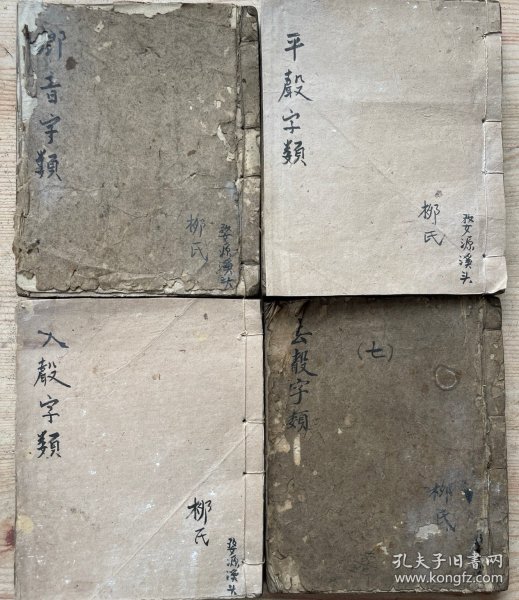 鄉音字類
柳氏
婺源溪头
平聲字類
柳氏
婺源溪头
入聲字類
柳氏
婺源溪头
去聲字類
(七)
柳氏
孔夫子旧书网
www.kongfz.com